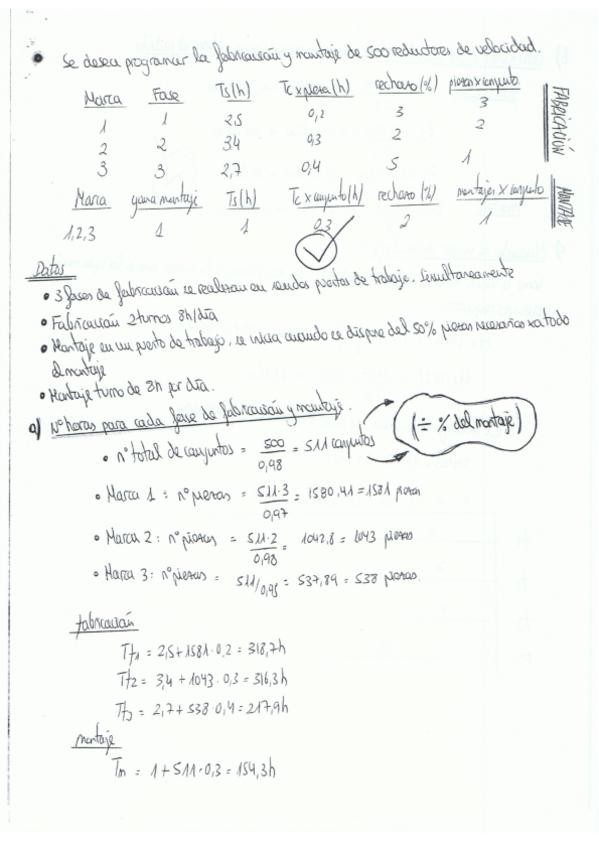 • Se desea programar la fabricación y montaje de 500 reductores de velocidad.
Marca Fase Ts(h) Tc x pieza (h) rechazo (%) piezas x conjunto
1 1 2,5 0,2 3 3
2 2 3,4 0,3 2 2
3 3 2,7 0,4 5 1
FABRICACIÓN
Marca gama montaje Ts(h) Tc x conjunto (h) rechazo (%) montajes x conjunto
1,2,3 1 1 0,3 2 1
MONTAJE
Datos
• 3 fases de fabricación se realizan en sendos puestos de trabajo. Simultaneamente
• Fabricación 2 turnos 8h/día
• Montaje en un puesto de trabajo, se inicia cuando se dispone del 50% piezas necesarias xa todo
el montaje
• Montaje turno de 8h por día.
a) Nº horas para cada fase de fabricación y montaje.
• nº total de conjuntos = 500/0,98 = 511 conjuntos
(÷ % del montaje)
• Marca 1: nº piezas = 511·3/0,97 = 1580,41 = 1581 piezas
• Marca 2: nº piezas = 511·2/0,98 = 1042,8 = 1043 piezas
• Marca 3: nº piezas = 511/0,95 = 537,89 = 538 piezas.
fabricación
Tf1 = 2,5 + 1581·0,2 = 318,7h
Tf2 = 3,4 + 1043·0,3 = 316,3h
Tf3 = 2,7 + 538·0,4 = 217,9h
montaje
Tm = 1 + 511·0,3 = 154,3h